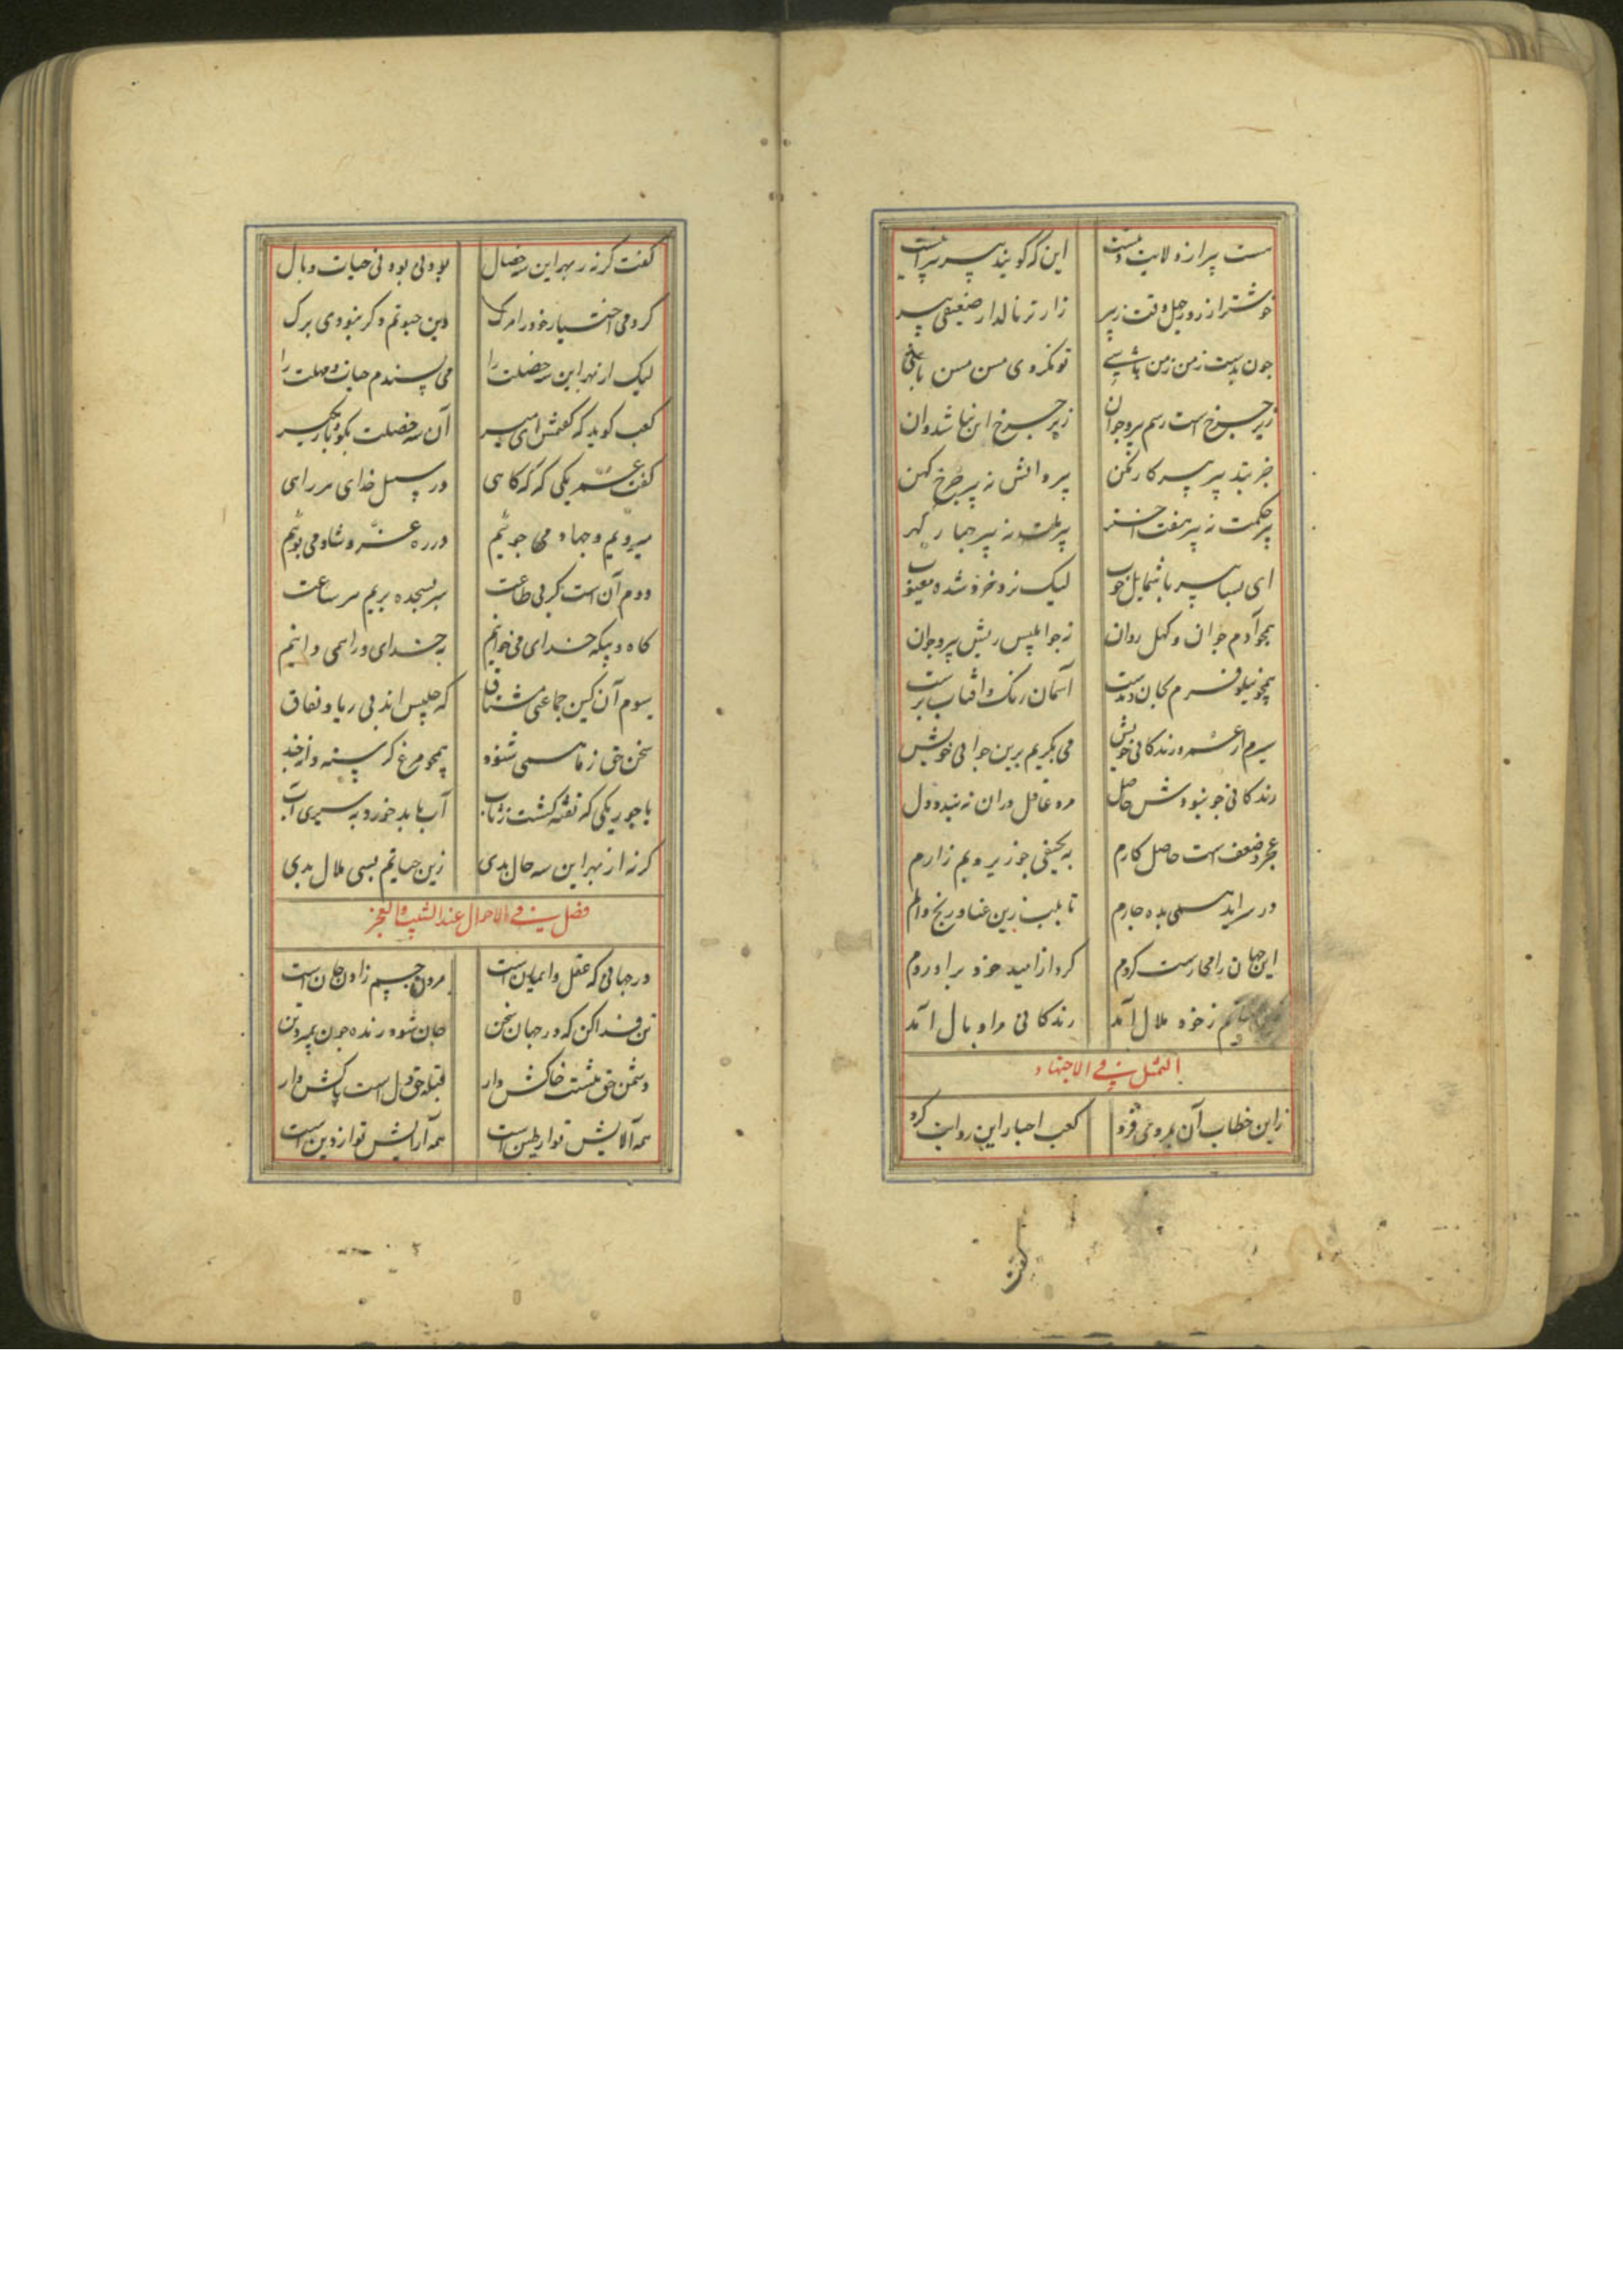 هست پیر از ولایت دینست این که گویند پیر پیر اینست
خوشتر از روز جهل وقت زئیر زارتر نالد از ضعیفی پیر
چون بدیدست زمن زمن باشی تو نگروی مسن مسن باشی
زیر چرخ است رسم پیر و جوان زیر چرخ این نباشد و آن
خیره پیر پیر کار مکن پیر دانش نه پیر چرخ کهن
پیر حکمت نه پیر هفت اختر پیر ملت نه پیر چهار گهر
ای بسا پیر با شمایل خوب لیک نزد خرد شده معیوب
همچو آدم جوان و کهل روان نه چو ابلیس ریش پیر و جوان
همچو نیلوفرم بجان و بدست آسمان رنگ و آفتاب پرست
سیرم از عمر و زندگانی خویش می بگریم برین جوانی خویش
زندگانی چو نبودش حاصل مرد عاقل در آن نبندد دل
عجز و ضعف است حاصل کارم به نحیفی چو زیر و بم زارم
در سرای سه بده چارم تا بلب زین عنا و رنج و الم
این جهان را مجاز ست کردم کرد از امید خود برآوردم
زخود ملال آمد زندگانی مرا وبال آمد
التمثل فی الاجتهاد
زاین خطاب آن بمردی فرد کعب احبار این روایت کرد
گفت
گفت گر نه ز بهر این سه خصال بودنی بودنی حیات وبال
کردمی اختیار خود را مرگ وین حیوتم وگر نبودی برگ
لیک از بهر این سه خصلت را می پسندم حیات و مهلت را
کعب گوید که گفتمش ای میر آن سه خصلت بگو و باز مگیر
گفت عمر یکی که گه گاهی در سبیل خدای هر راهی
میرویم و جهاد می جوئیم در ره غزو شاد می پوئیم
دوم آن است کز پی طاعت سر بسجده بریم هر ساعت
گاه و بیگه خدای می خوانیم به خدای ورا همی دانیم
سوم آن کین جماعتی مشتاق که جلیس اند بی ریا و نفاق
سخن حق ز ما همی شنوند همچو مرغ گرسنه دانه چنند
یا چو ریگی که تفته گشت ز تاب آب باید خورد به سیری آب
گر نه از بهر این سه حال بدی زین حیاتم بسی ملال بدی
فصل فی الاحوال عند الشیب والعجز
در جهانی که عقل و ایمان است مردن جسم زادن جان است
تن فدا کن که در جهان سخن جان شود زنده چون بمیرد تن
دشمن حق تنست خاکش دار قبله حق دل است پاکش دار
همه آلایش تو از طین است همه آرایش تو از دین است